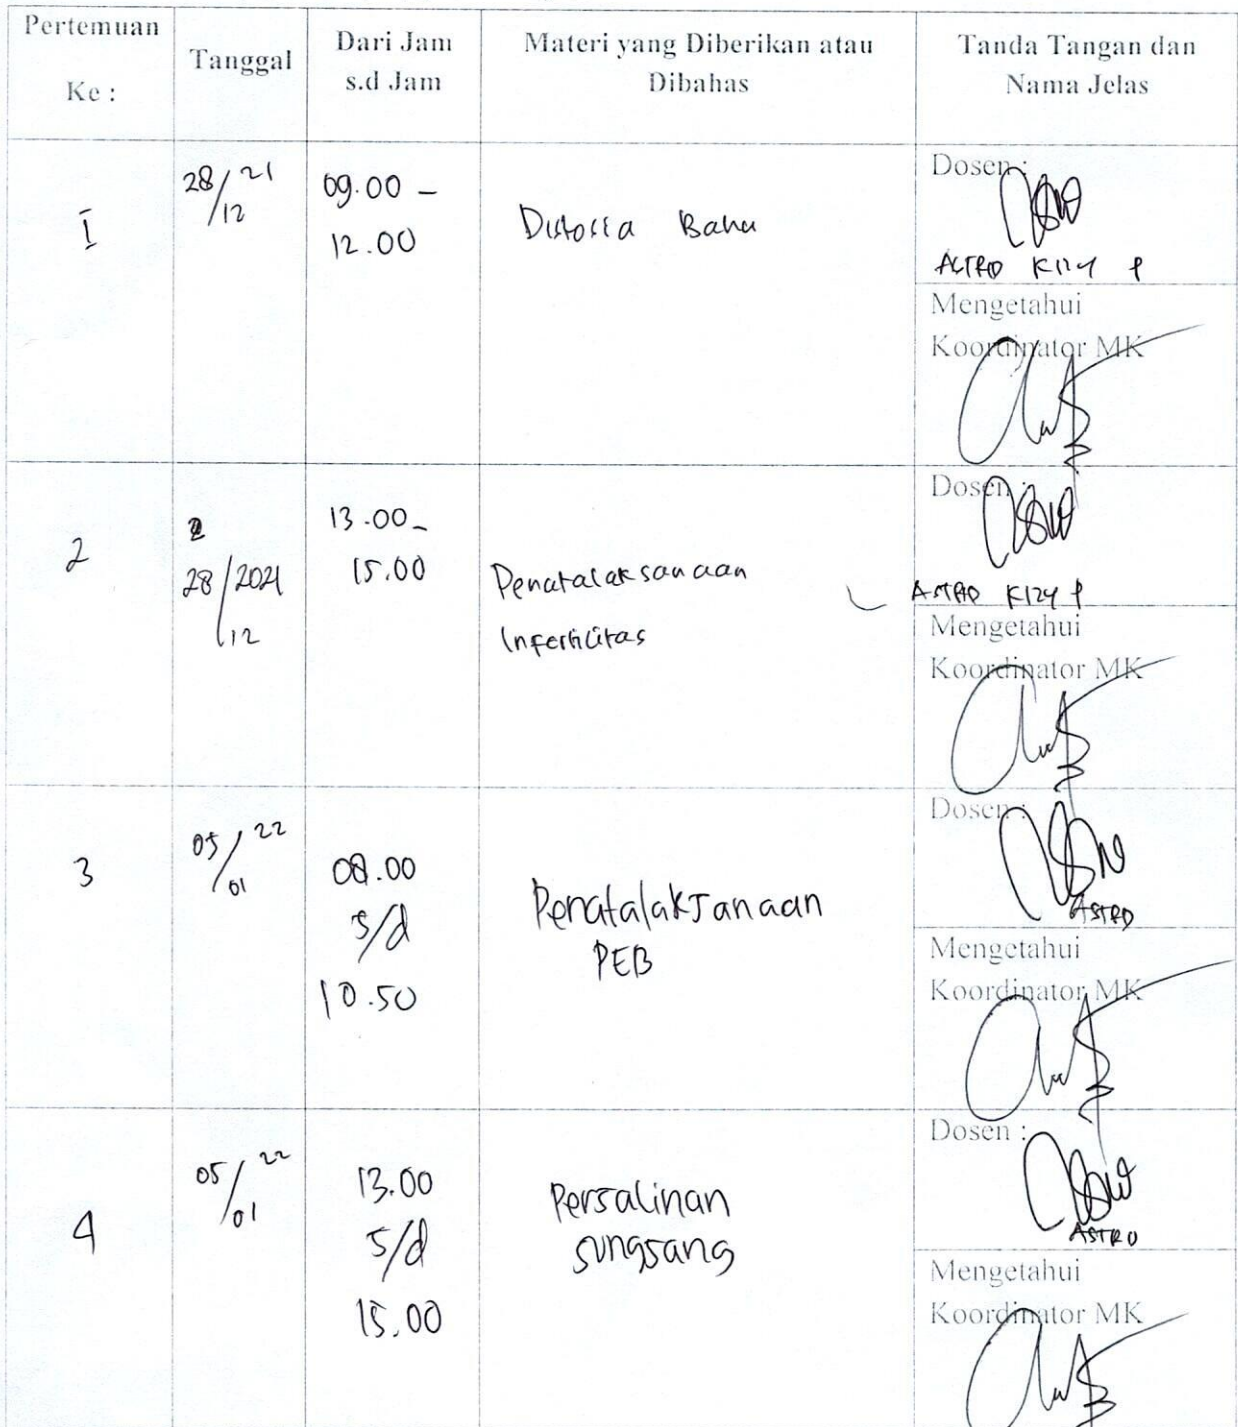 Pertemuan
Ke :
Tanggal
Dari Jam
s.d Jam
Materi yang Diberikan atau
Dibahas
Tanda Tangan dan
Nama Jelas
I
28/12 21
09.00 -
12.00
Distosia Bahu
Dosen :
ASTRO KIZY P
Mengetahui
Koordinator MK
2
28/2021
12
13.00-
15.00
Penatalaksanaan
Infertilitas
Dosen :
ASTRO KIZY P
Mengetahui
Koordinator MK
3
05/01 22
08.00
s/d
10.50
Penatalaksanaan
PEB
Dosen :
ASTRO
Mengetahui
Koordinator MK
4
05/01 22
13.00
s/d
15.00
Persalinan
sungsang
Dosen :
ASTRO
Mengetahui
Koordinator MK